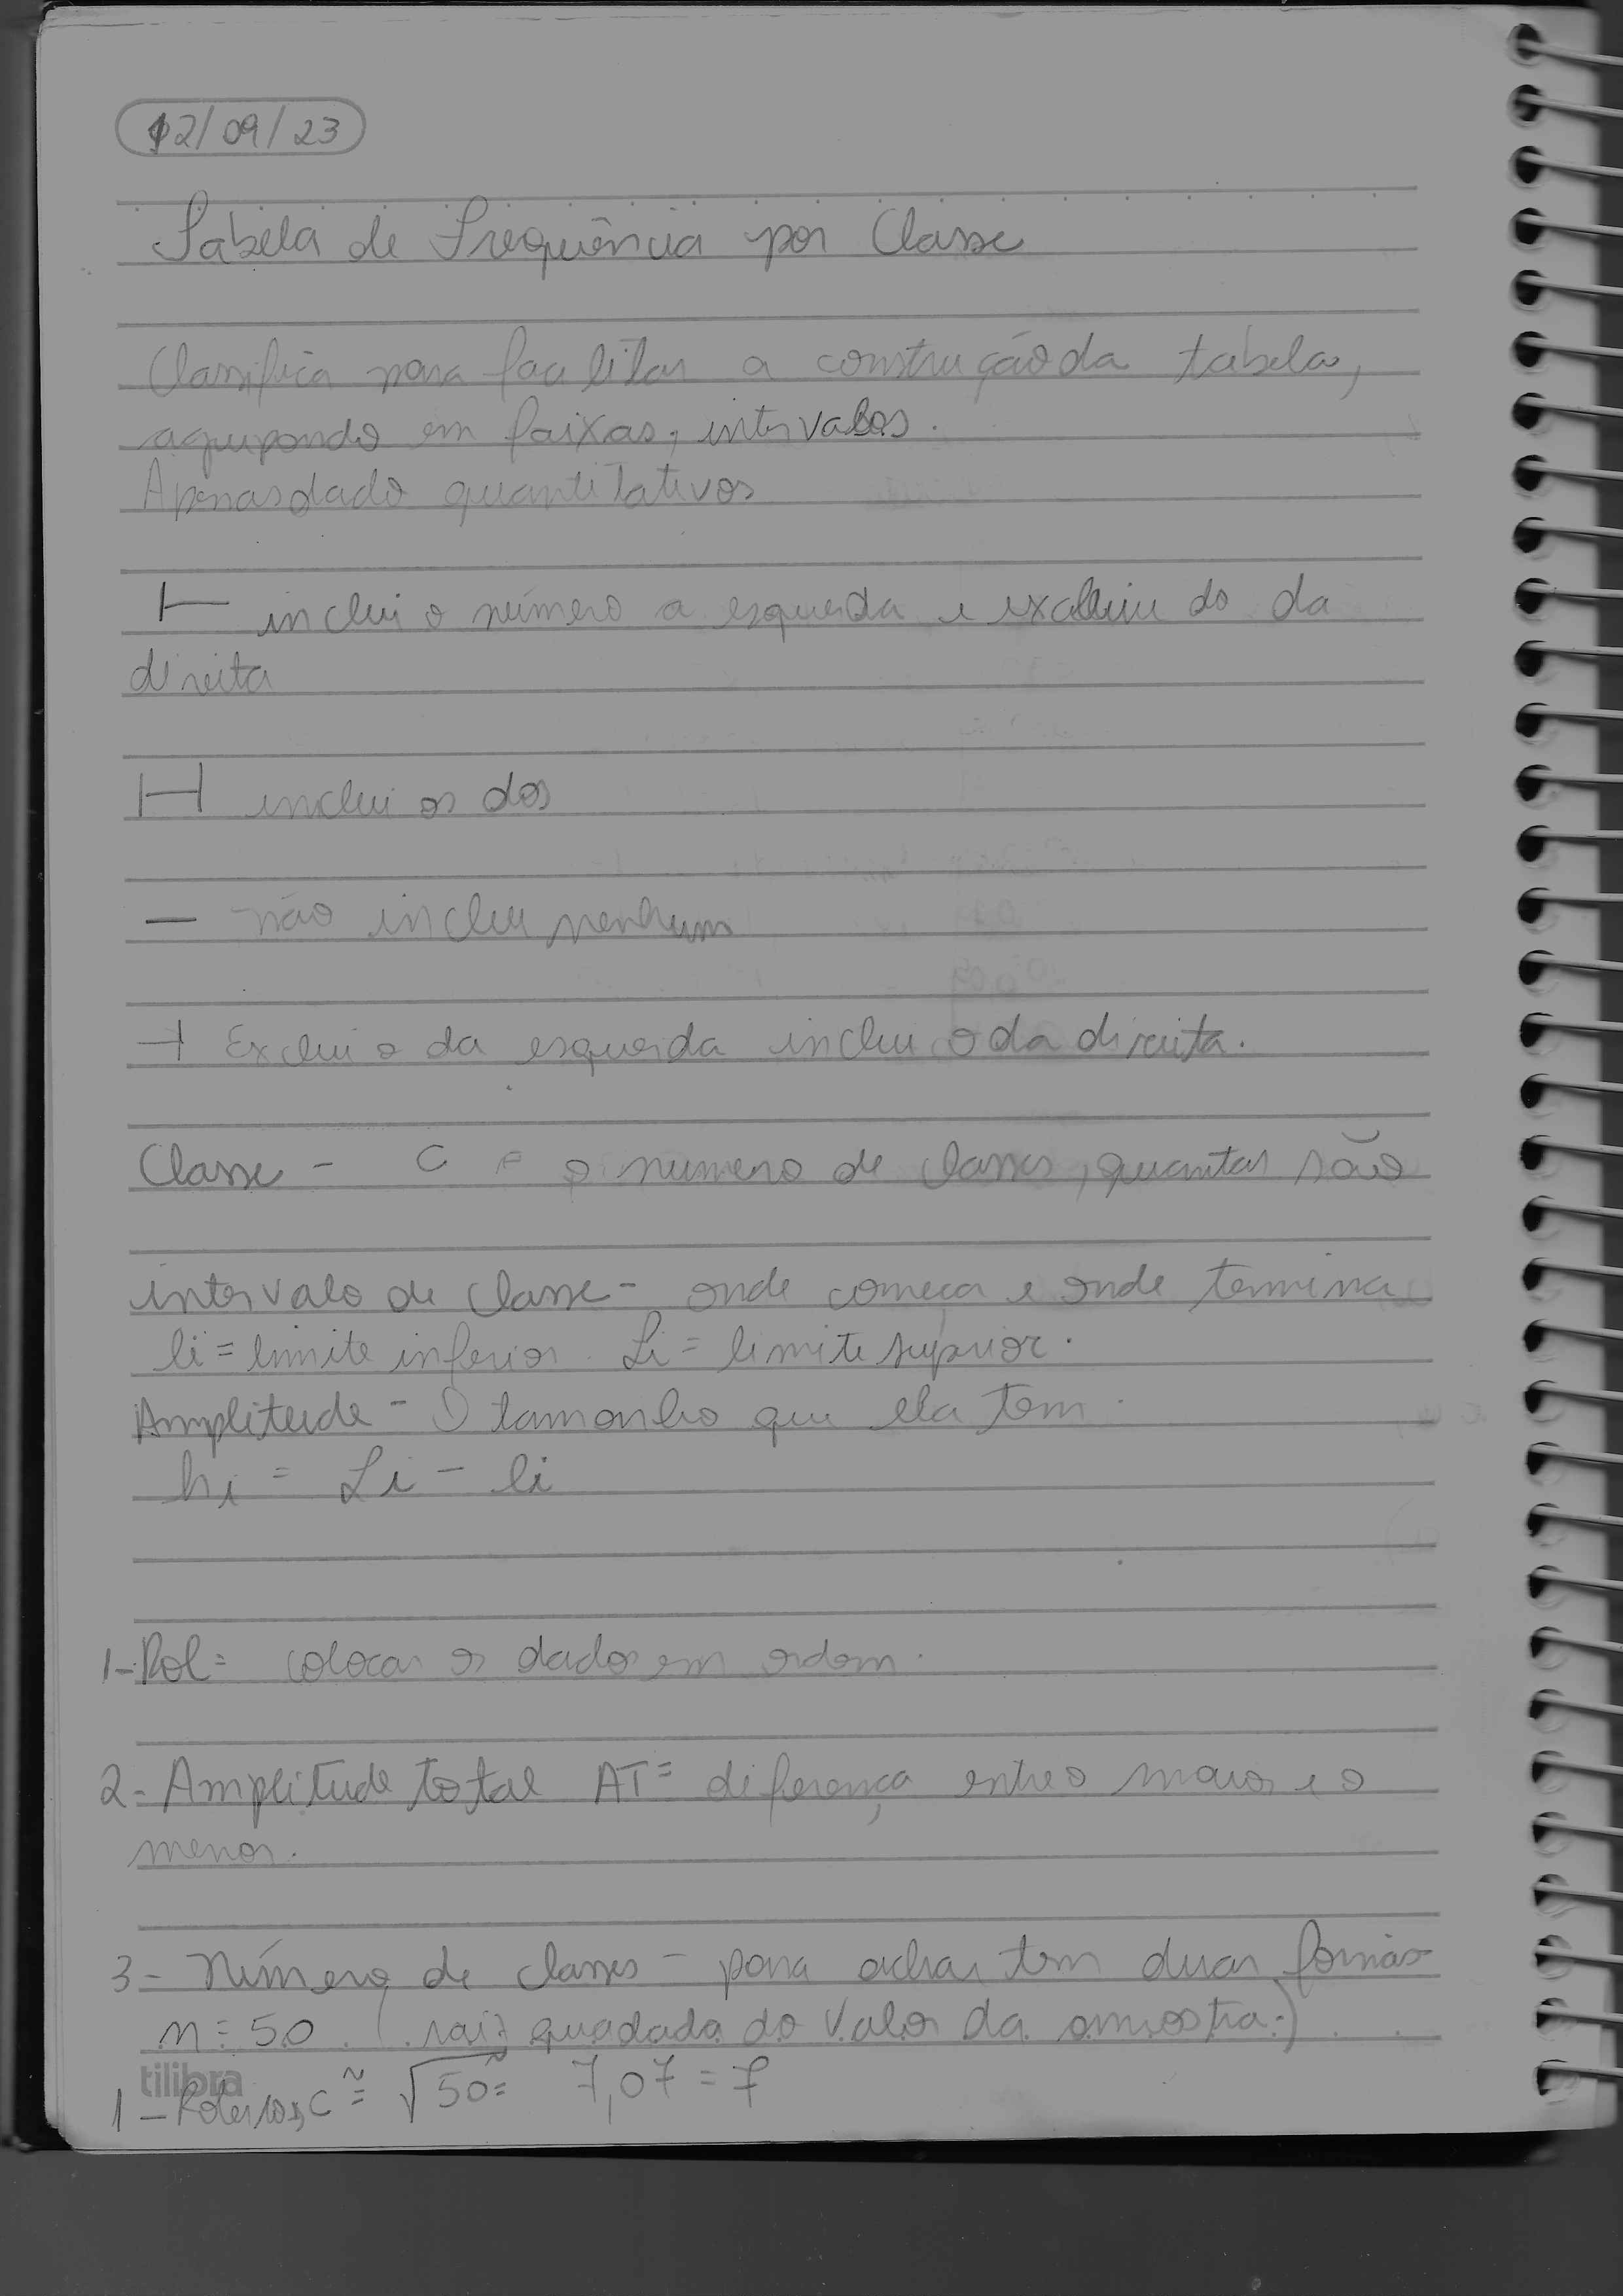 12/09/23
Tabela de Frequência por Classe
Classifica para facilitar a construção da tabela,
agrupando em faixas, intervalos.
Apenas dado quantitativos
|— inclui o número a esquerda e exclui do da
direita
|—| inclui os dos
— não inclui nenhum
—| Exclui o da esquerda inclui o da direita.
Classe - C e o numero de classes, quantas são
intervalo de classe - onde começa e onde termina
li = limite inferior. Li = limite superior.
Amplitude - O tamanho que ela tem.
hi = Li - li
1-Rol= colocar os dados em ordem.
2- Amplitude total AT= diferença entre o maior e o
menor.
3- Número de classes - para achar tem duas formas
n=50 (raiz quadada do valor da amostra.)
tilibra
1- C ≅ √50 ≅ 7,07 = 7